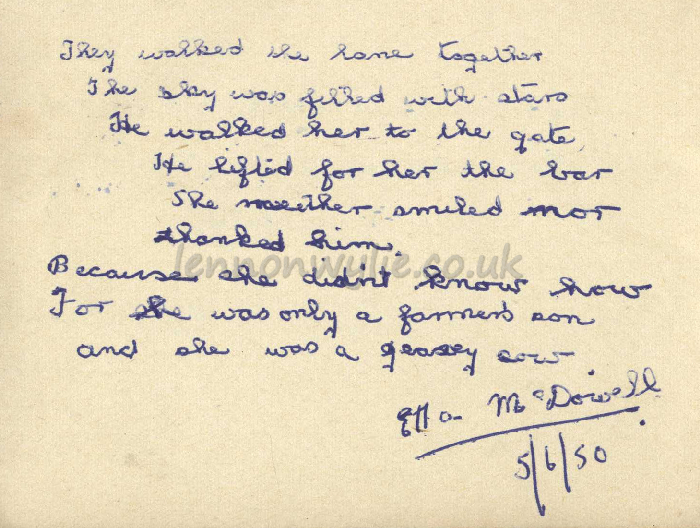 They walked the lane together
The sky was filled with stars
He walked her to the gate
He lifted for her the bar
She neither smiled nor
thanked him.
lennonwylie.co.uk
Because she didn't know how
For he was only a farmers son
and she was a gearsey cow
Effa McDowell
5/6/50